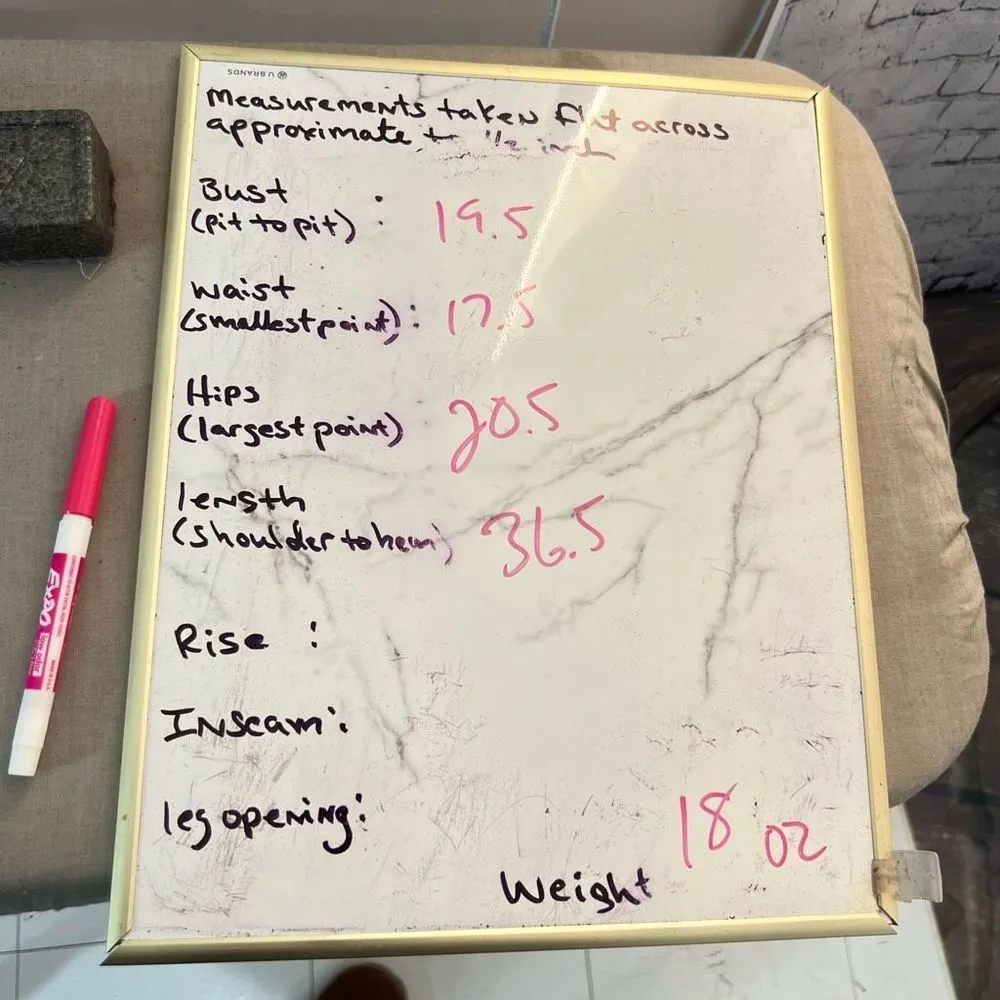 U BRANDS
Measurements taken flat across
approximate 1/2 inch
Bust
(pit to pit) : 19.5
Waist
(smallest point) : 17.5
Hips
(largest point) 20.5
length
(shoulder to hem) 36.5
Rise :
Inseam :
leg opening :
18 oz
Weight
EXPO